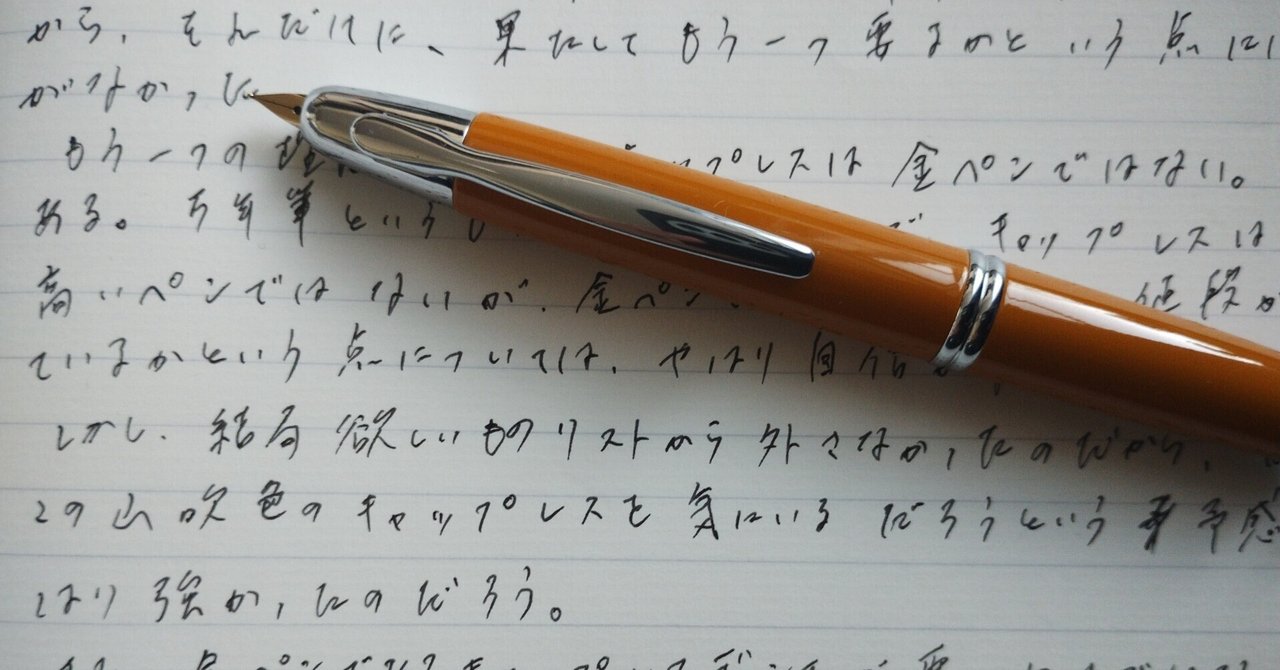 から、それだけに、果たしてもう一つ要るかという点に
がなかった
もう一つの理 プレスは金ペンではない。
ある。万年筆というし で、キャップレスは
高いペンではないが、金ペン 値段が
ているかという点については、やはり自信
しかし、結局欲しいものリストから外さなかったのだから、
この山吹色のキャップレスを気にいるだろうという予感
はり強かったのだろう。